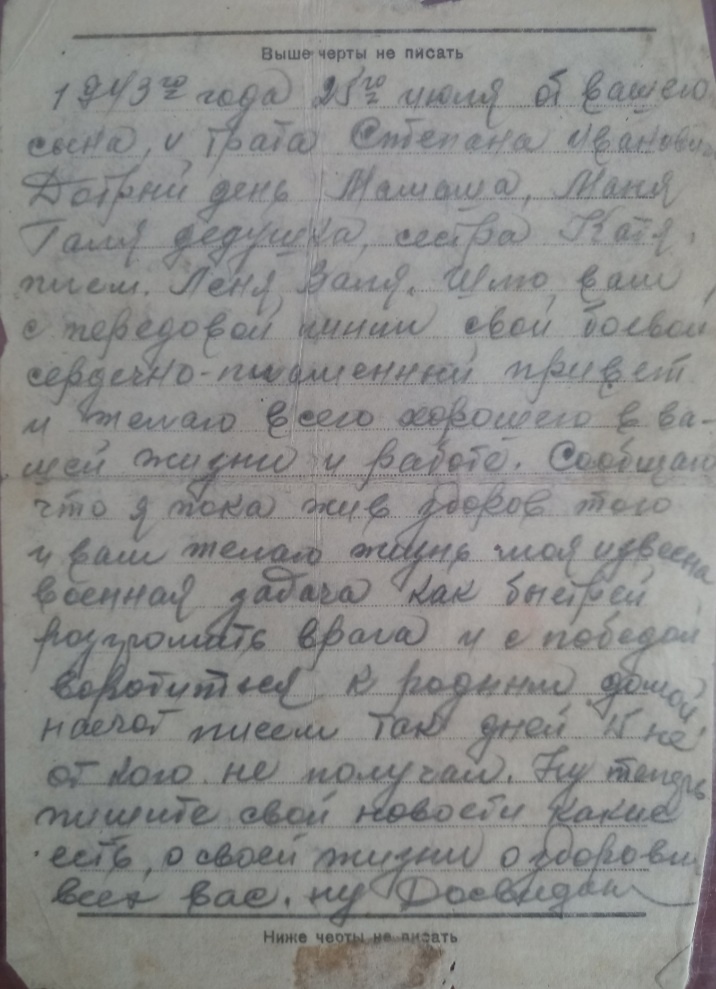 Выше черты не писать
1943го года 25го июля от вашего
сына, и брата Степана Иванович
Добрий день Мамаша, Маня
Галя дедушка, сестра Катя,
плем. Лёня, Валя. Шлю вам
с передовой линии свой боевой
сердечно-пламенный привет
и желаю всего хорошего в ва-
шей жизни и работе. Сообщаю
что я пока жив здоров того
и вам желаю жизнь моя извесна
военная задача как быстрей
розгромить врага и с победой
воротиться к родным домой
насчот писем так дней 15 не
от кого не получал. Ну теперь
пишите свои новости какие
есть, о своей жизни о здоровьи
всех вас. ну Досвидан
Ниже черты не писать